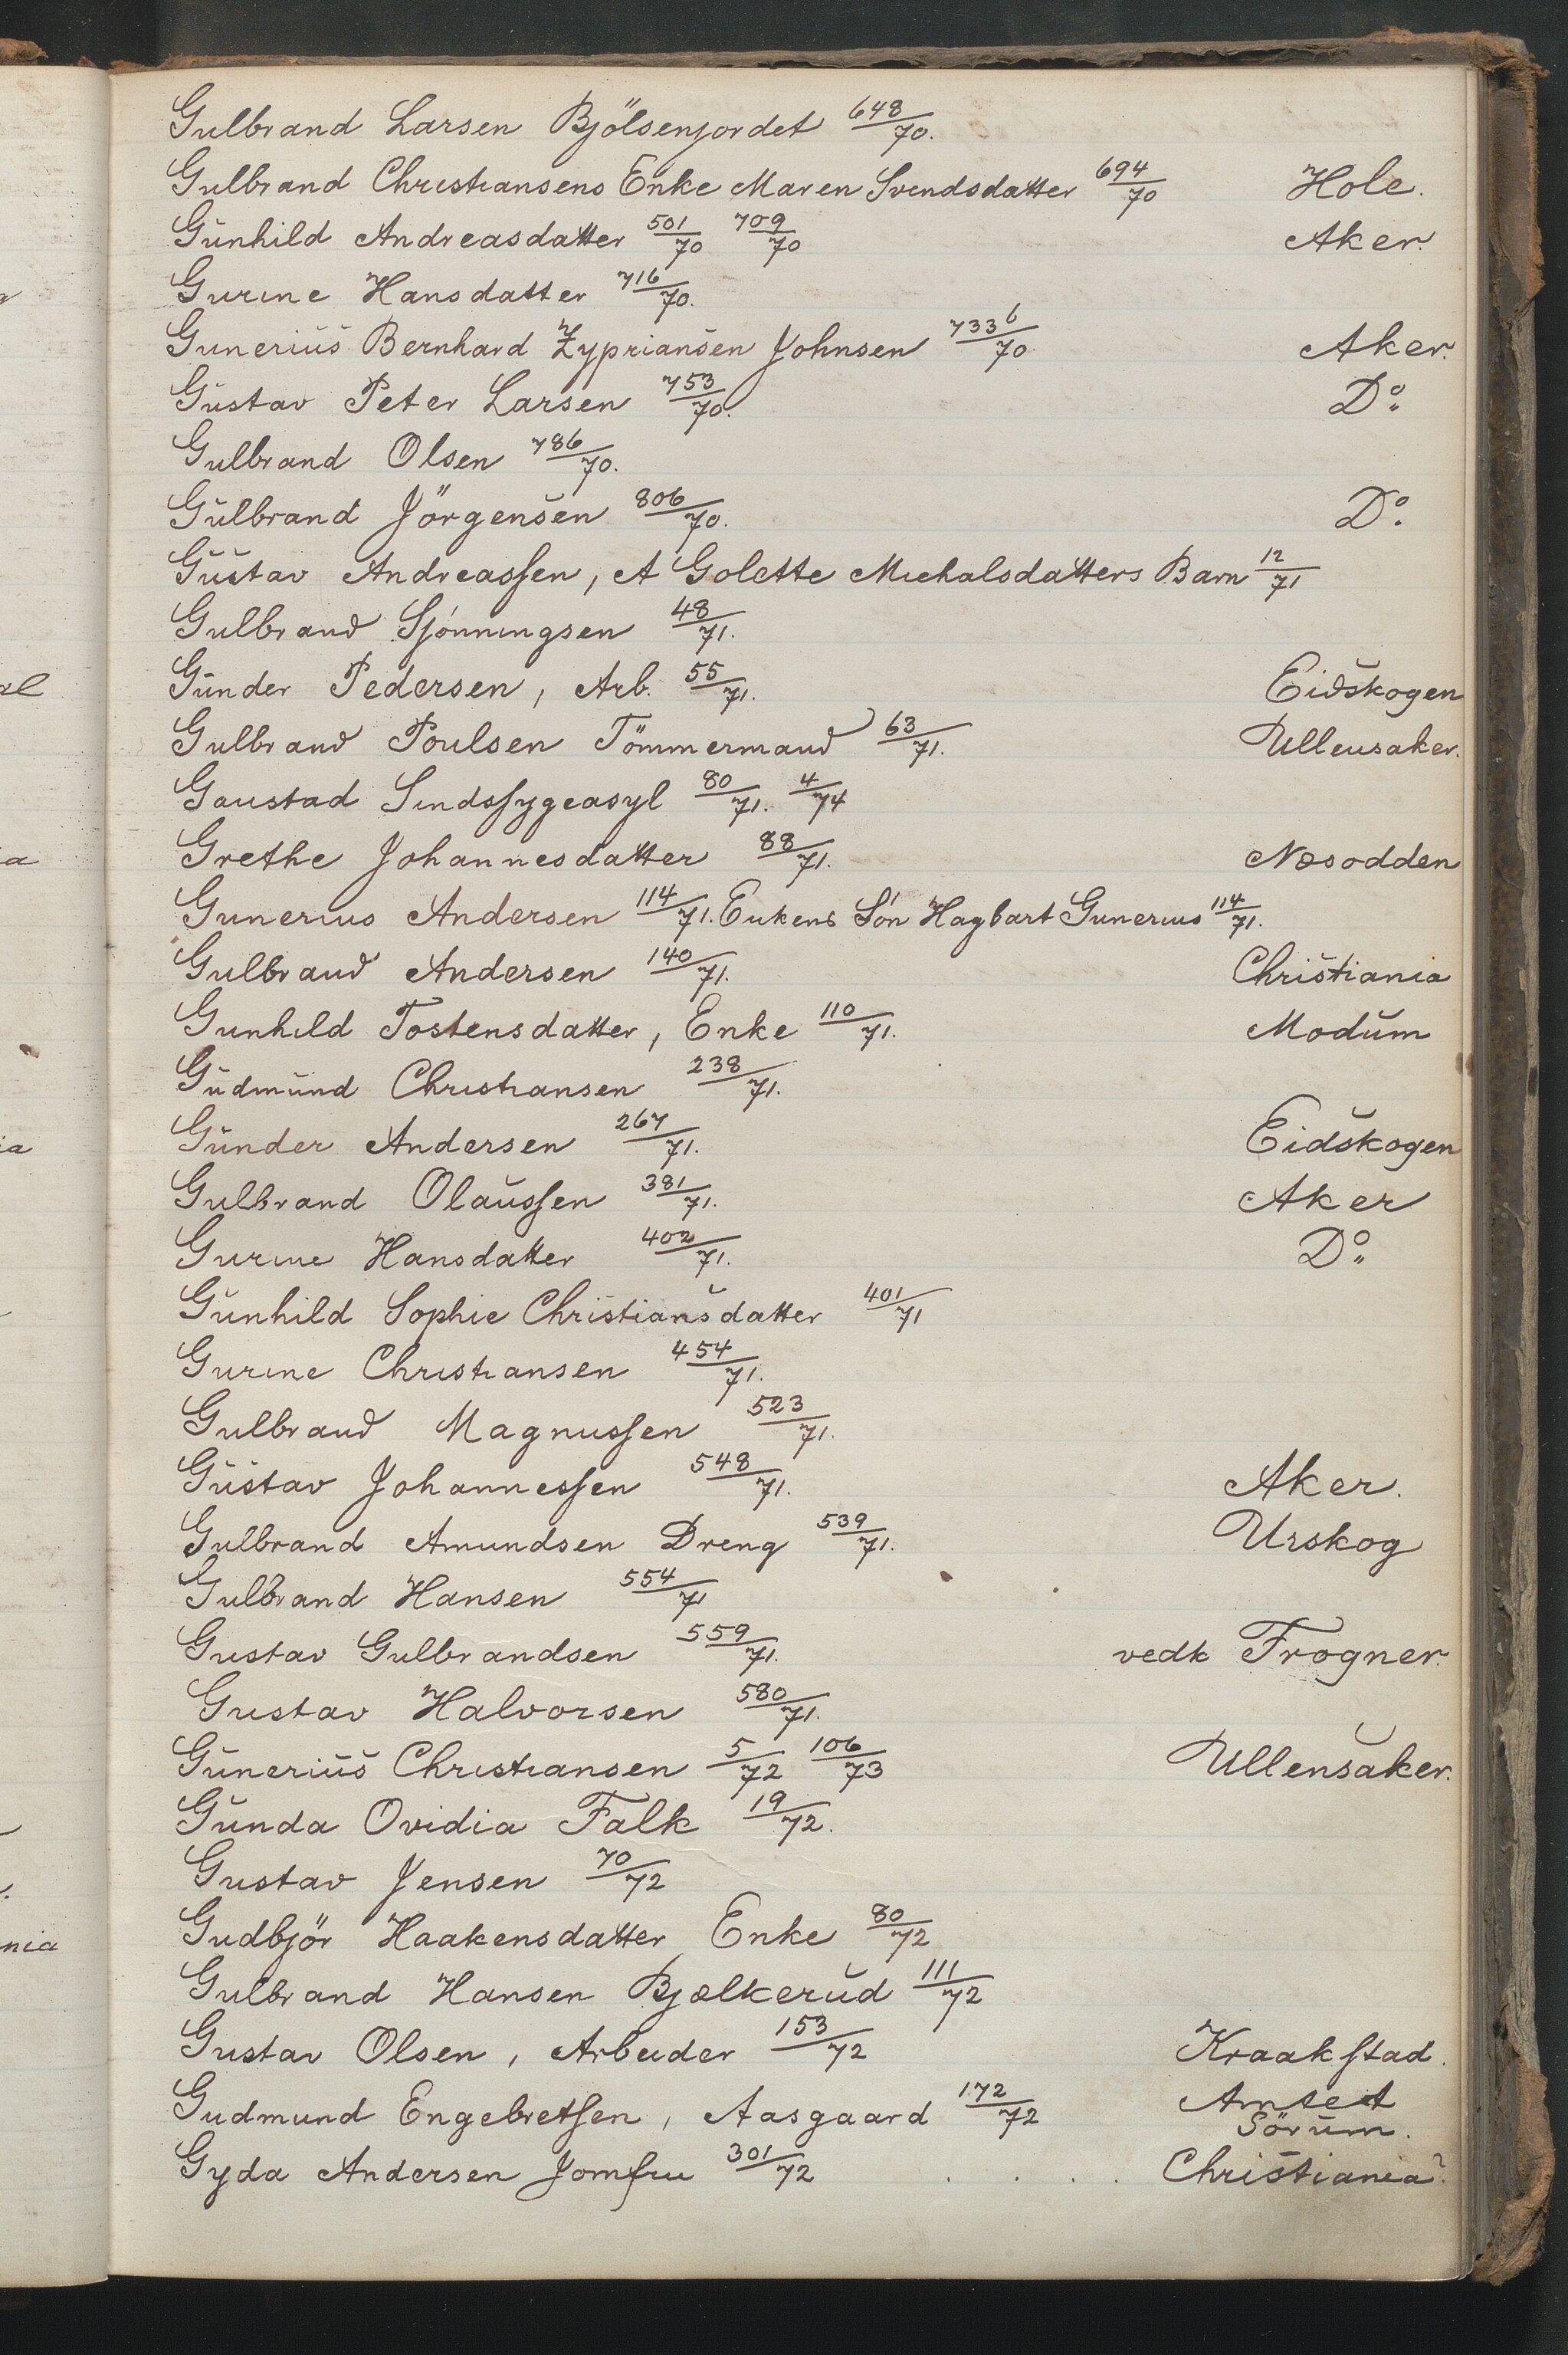 Gulbrand Larsen Bjölsenjordet 648/70.
Gulbrand Christiansens Enke Maren Svendsdatter 694/70 Hole.
Gunhild Andreasdatter 501/70 709/70 Aker.
Gurine Hansdatter 716/70.
Gunerius Bernhard Zypriansen Johnsen 733 6/70 Aker.
Gustav Peter Larsen 753/70. Do.
Gulbrand Olsen 786/70.
Gulbrand Jörgensen 806/70. Do.
Gustav Andreassen, A Golette Michalsdatters Barn 12/71
Gulbrand Sjónningsen 48/71.
Gunder Pedersen, Arb. 55/71. Eidskogen
Gulbrand Poulsen Tömmermand 63/71. Ullensaker.
Gaustad Sindssygeasyl 80/71. 4/74
Grethe Johannesdatter 88/71. Næsodden
Gunerius Andersen 114/71. Enkens Sön Hagbart Gunerius 114/71.
Gulbrand Andersen 140/71. Christiania
Gunhild Tostensdatter, Enke 110/71. Modum
Gudmund Christiansen 238/71.
Gunder Andersen 267/71. Eidskogen
Gulbrand Olaussen 381/71. Aker
Gurine Hansdatter 402/71. Do.
Gunhild Sophie Christiansdatter 401/71
Gurine Christiansen 454/71.
Gulbrand Magnussen 523/71.
Gustav Johannessen 548/71. Aker.
Gulbrand Amundsen Dreng 539/71. Urskog
Gulbrand Hansen 554/71
Gustav Gulbrandsen 559/71. vedk Frogner.
Gustav Halvorsen 580/71.
Gunerius Christiansen 5/72 106/73 Ullensaker.
Gunda Ovidia Falk 19/72.
Gustav Jensen 70/72
Gudbjör Haakensdatter Enke 80/72
Gulbrand Hansen Bjælkerud 111/72
Gustav Olsen, Arbeider 153/72 Kraakstad.
Gudmund Engebretsen, Aasgaard 172/72 Amtet
Sörum.
Gyda Andersen Jomfru 301/72 . . . . Christiania?